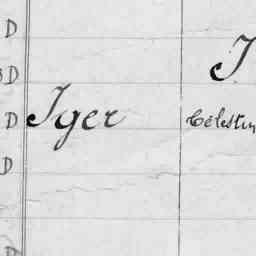 D
I
D
D Iger Célestin
D
D